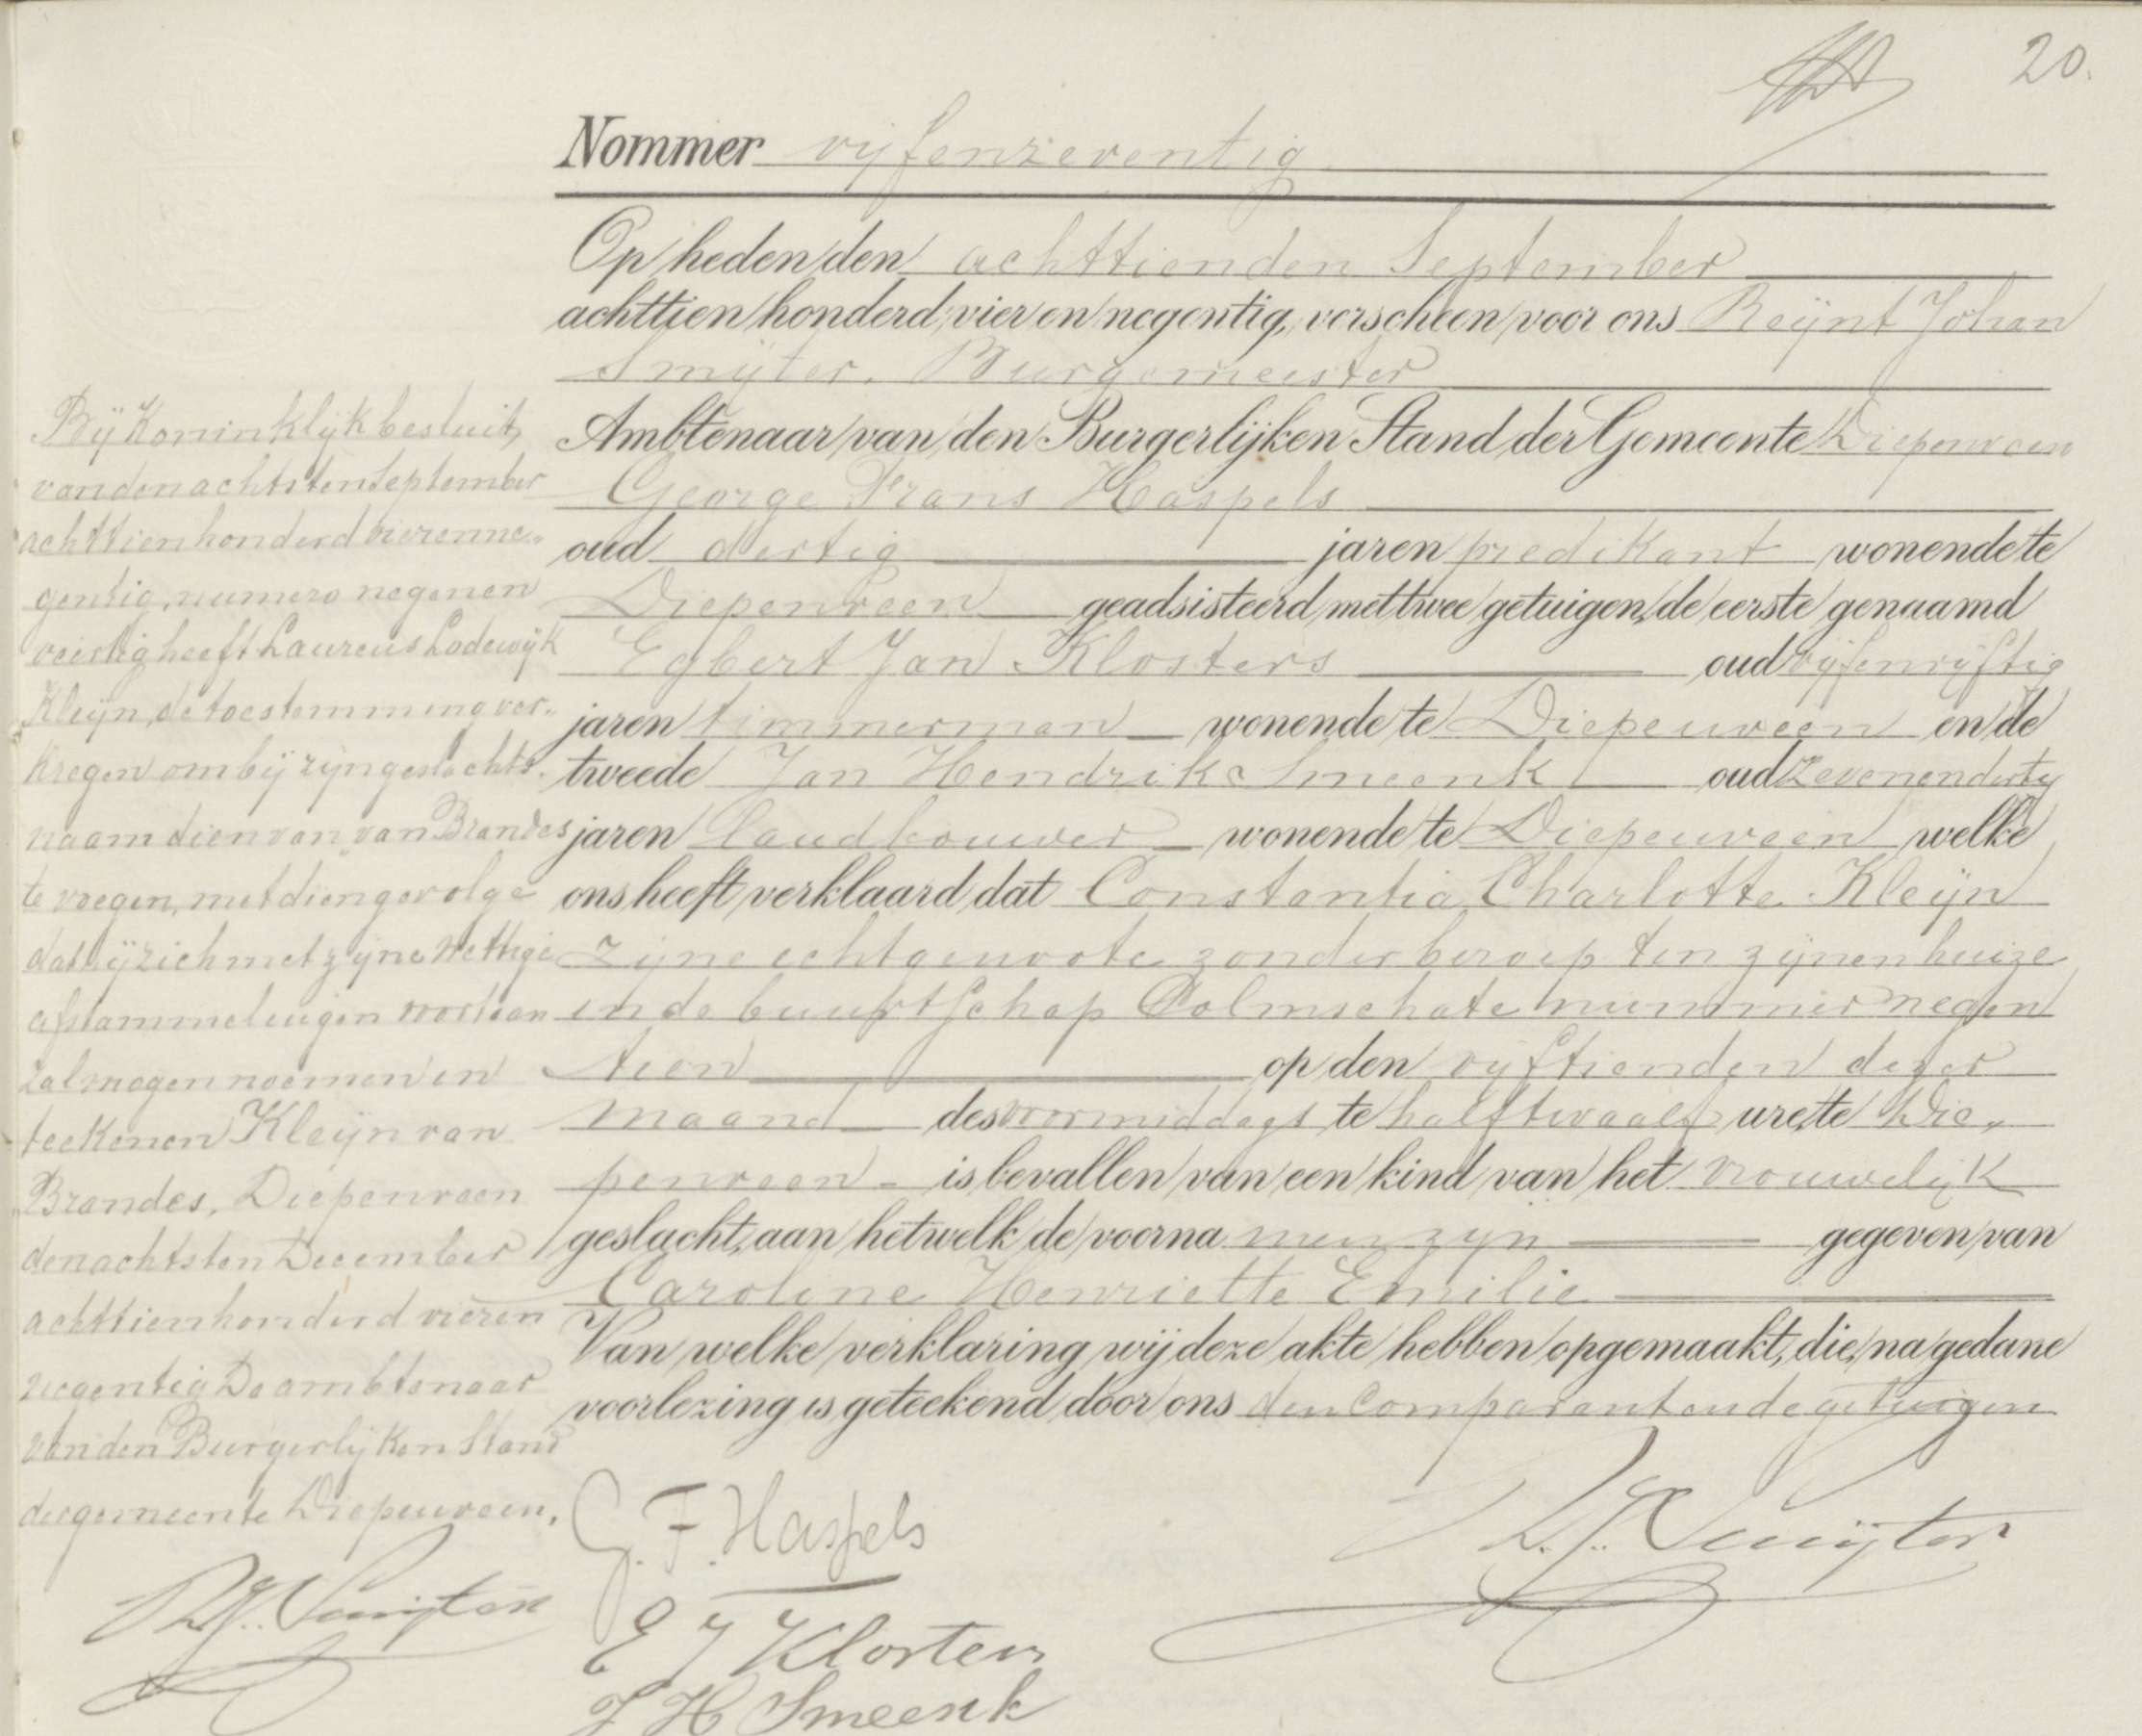 20.
Nommer vijfenzeventig
Op heden den achttienden September
achttien honderd vier en negentig, verscheen voor ons Reijnt Johan
Smijter, Burgemeester
Ambtenaar van den Burgerlijken Stand der Gemeente Diepenveen
George Frans Haspels
oud dertig jaren predikant wonende te
Diepenveen geadsisteerd met twee getuigen, de eerste genaamd
Egbert Jan Klosters oud vijfenvijftig
jaren timmerman wonende te Diepenveen en de
tweede Jan Hendrik Smeenk oud zevenendertig
jaren landbouwer wonende te Diepenveen welke
ons heeft verklaard dat Constantia Charlotte Kleijn
zijne echtgenoote zonder beroep ten zijnen huize
in de buurtschap Colmschate nummer negen
tien op den vijftienden dezer
maand des voormiddags te half twaalf ure, te Die„
penveen is bevallen van een kind van het vrouwelijk
geslacht, aan hetwelk de voorna men zijn gegeven van
Caroline Henriette Emilie
Van welke verklaring wij deze akte hebben opgemaakt, die, na gedane
voorlezing is geteekend door ons den Comparant en de getuigen
G. F. Haspels
R. J. Smijter
E J Klosters
J H Smeenk
Bij Koninklijk besluit,
van den achtsten September
achttienhonderd vierenne„
gentig, numero negen en
veertig heeft Laurens Lodewijk
Kleijn, de toestemming ver„
kregen om bij zijn geslachts„
naam dien van van Brandes
te voegen, met dien gevolge
dat hij zich met zijne wettige
afstammelingen voortaan
zal mogen noemen en
teekenen Kleijn van
Brandes, Diepenveen
den achtsten December
achttienhonderd vieren
negentig De ambtenaar
van den Burgerlijken Stand
der gemeente Diepenveen,
R. J. Smijter